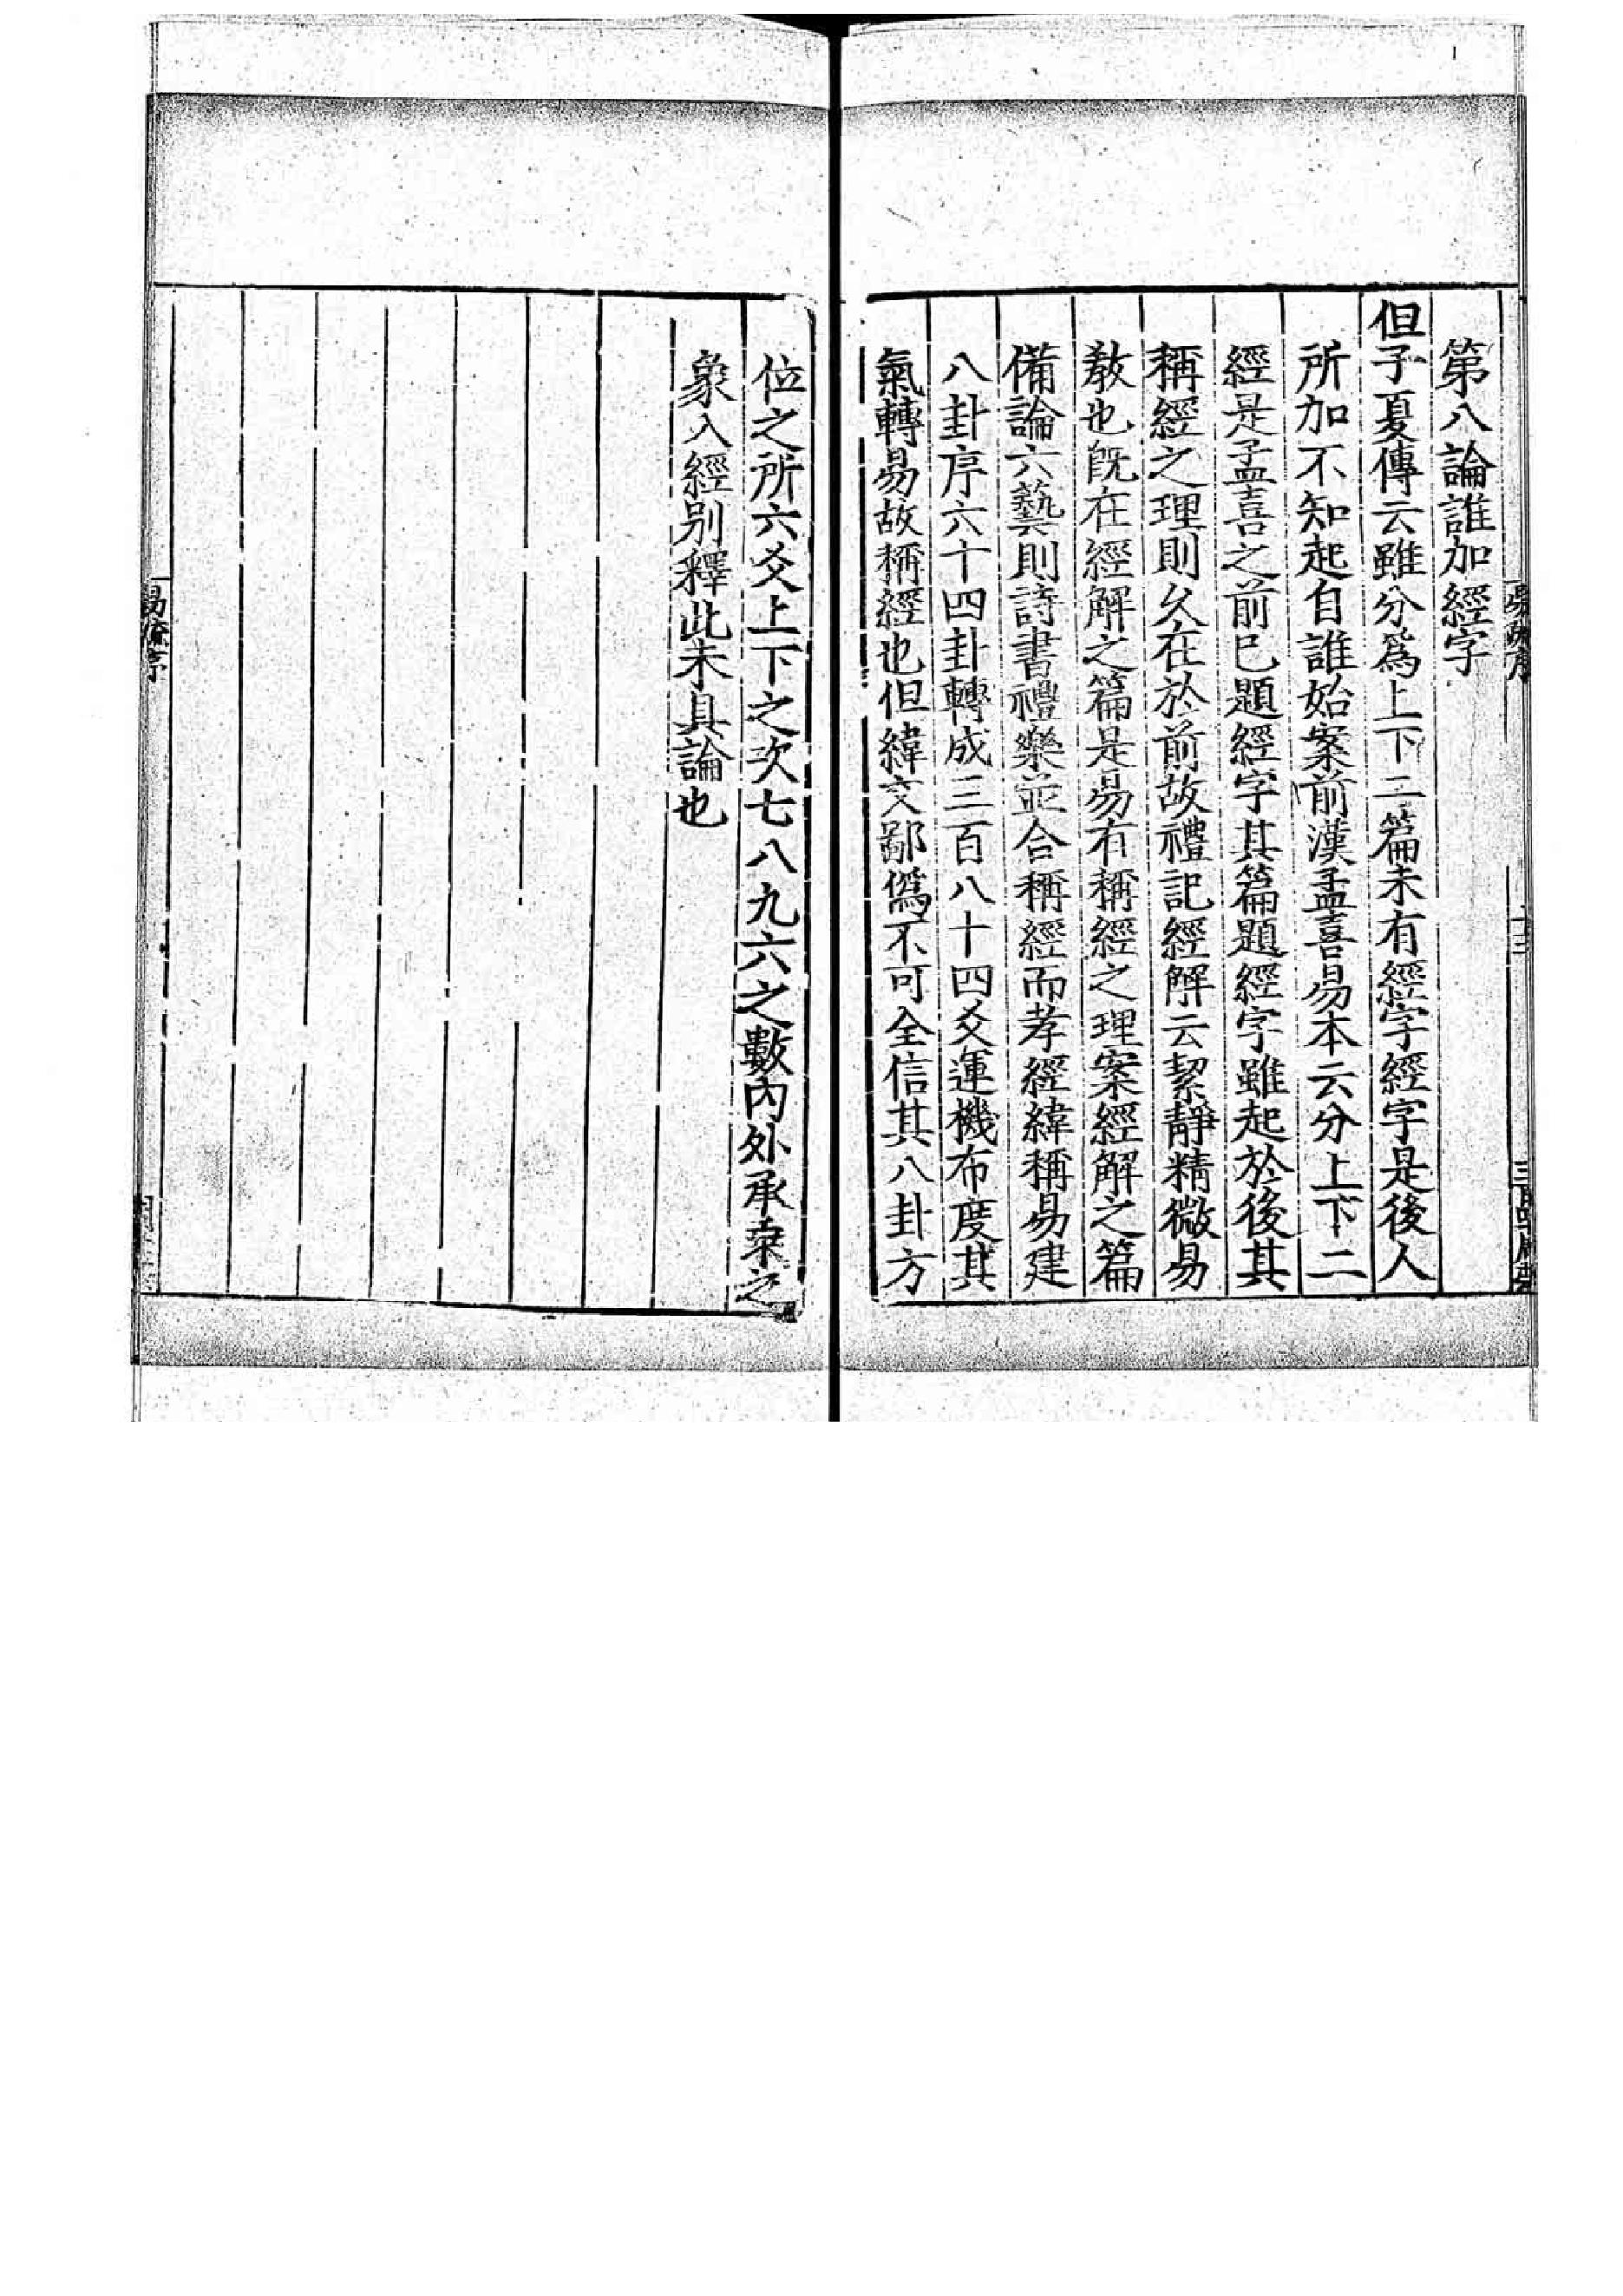 第八論誰加經字
但子夏傳云雖分爲上下二篇未有經字經字是後人
所加不知起自誰始案前漢孟喜易本云分上下二
經是孟喜之前已題經字其篇題經字雖起於後其
稱經之理則久在於前故禮記經解云絜靜精微易
教也旣在經解之篇是易有稱經之理案經解之篇
備論六藝則詩書禮樂並合稱經而孝經緯稱易建
八卦序六十四卦轉成三百八十四爻運機布度其
氣轉易故稱經也但緯文鄙僞不可全信其八卦方
位之所六爻上下之次七八九六之數內外承乗之
象入經別釋此未具論也
易疏序